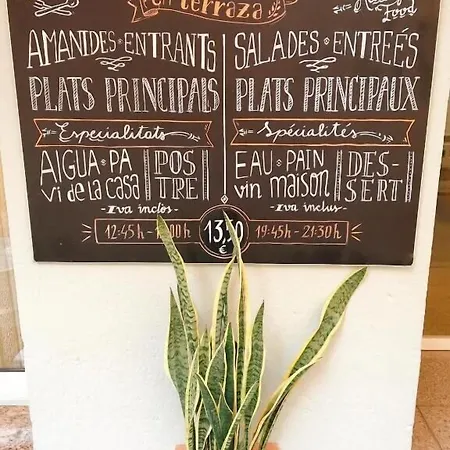 terraza
Food
AMANIDES · ENTRANTS
PLATS PRINCIPALS
Especialitats
AIGUA · PA
VI DE LA CASA
POSTRE
Iva inclòs
12:45h
SALADES · ENTREÉS
PLATS PRINCIPAUX
Spécialités
EAU · PAIN
vin maison
DESSERT
Iva inclus
19:45h - 21:30h
€